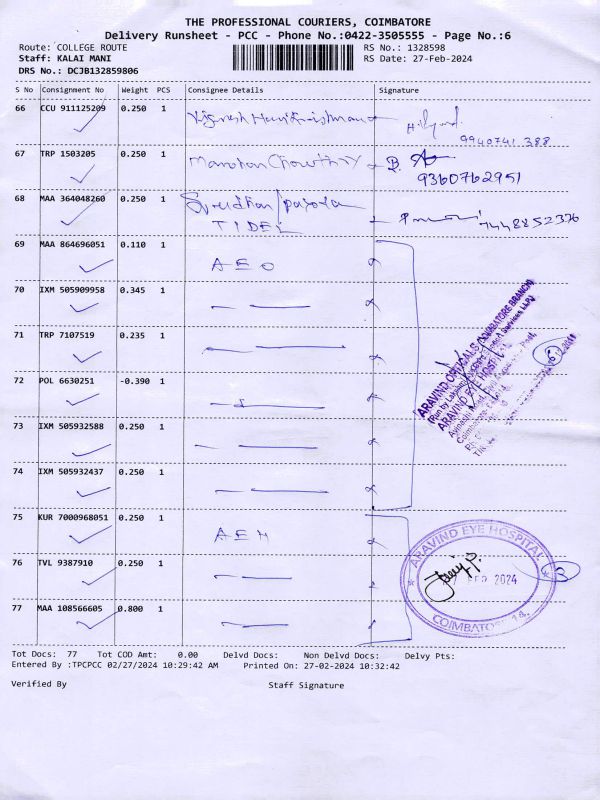 THE PROFESSIONAL COURIERS, COIMBATORE
Delivery Runsheet - PCC - Phone No.:0422-3505555 - Page No.:6
Route: COLLEGE ROUTE RS No.: 1328598
Staff: KALAI MANI RS Date: 27-Feb-2024
DRS No.: DCJB132859806
S No Consignment No Weight PCS Consignee Details Signature
66 CCU 911125209 0.250 1
9940741 388
67 TRP 1503205 0.250 1 Manohar Chowthry B.
9360762951
68 MAA 364048260 0.250 1
TIDEL 7448852376
69 MAA 864696051 0.110 1 AEO
70 IXM 505909958 0.345 1
71 TRP 7107519 0.235 1
72 POL 6630251 -0.390 1
73 IXM 505932588 0.250 1
74 IXM 505932437 0.250 1
ARAVIND OPTICALS (COIMBATORE BRANCH)
ARAVIND EYE HOSPITAL
6
75 KUR 7000968051 0.250 1 AEH
76 TVL 9387910 0.250 1
77 MAA 108566605 0.800 1
ARAVIND EYE HOSPITAL
FEB 2024
COIMBATORE
3
Tot Docs: 77 Tot COD Amt: 0.00 Delvd Docs: Non Delvd Docs: Delvy Pts:
Entered By :TPCPCC 02/27/2024 10:29:42 AM Printed On: 27-02-2024 10:32:42
Verified By Staff Signature